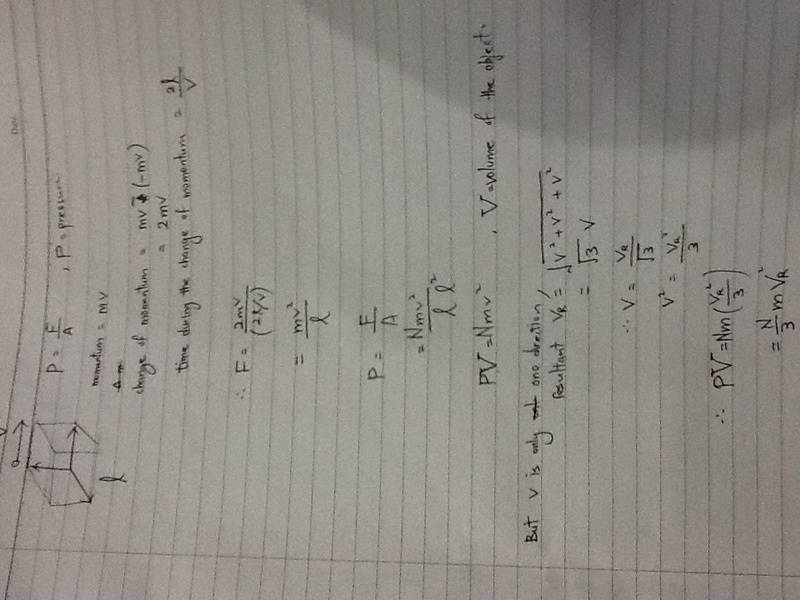 Date
V
l
P = F/A , P = pressure
momentum = mv
change of momentum = mv - (-mv)
= 2mv
time during the change of momentum = 2l/v
∴ F = 2mv/(2l/v)
= mv²/l
P = F/A
= Nmv²/l l²
PV = Nmv² , V = volume of the object.
But v is only one direction,
resultant V_R = √(v² + v² + v²)
= √3 v
∴ v = V_R/√3
v² = V_R²/3
∴ PV = Nm(V_R²/3)
= N/3 m V_R²